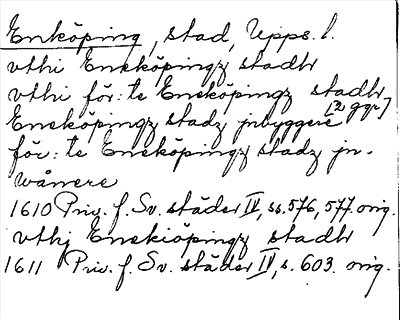 Enköping, stad, Upps. l.
vthi Eneköpingz stadh
vthi för:te Eneköpingz stadh
[2 ggr]
Eneköpingz stadz jnbyggere
för:te Eneköpingz stadz jn-
wånere
1610 Priv. f. Sv. städer IV, ss. 576, 577. orig.
vthj Enekiöpingz stadh
1611 Priv. f. Sv. städer IV, s. 603. orig.